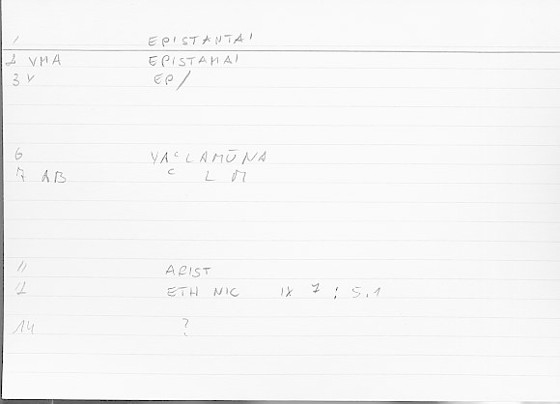 1 EPISTANTAI
2 VMA EPISTAMAI
3 V EP/
6 YAᶜLAMŪNA
7 AB ᶜ L M
11 ARIST
12 ETH NIC IX 7 : 5.1
14 ?